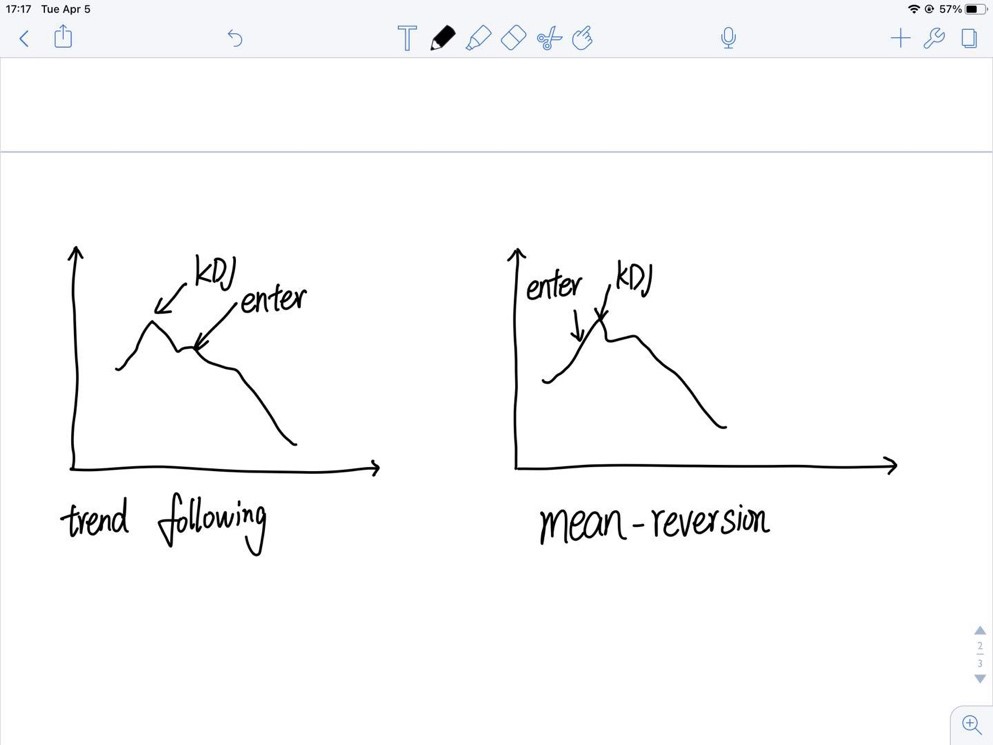 17:17 Tue Apr 5
57%
T
KDJ
enter
trend following
enter
KDJ
mean-reversion
2
3